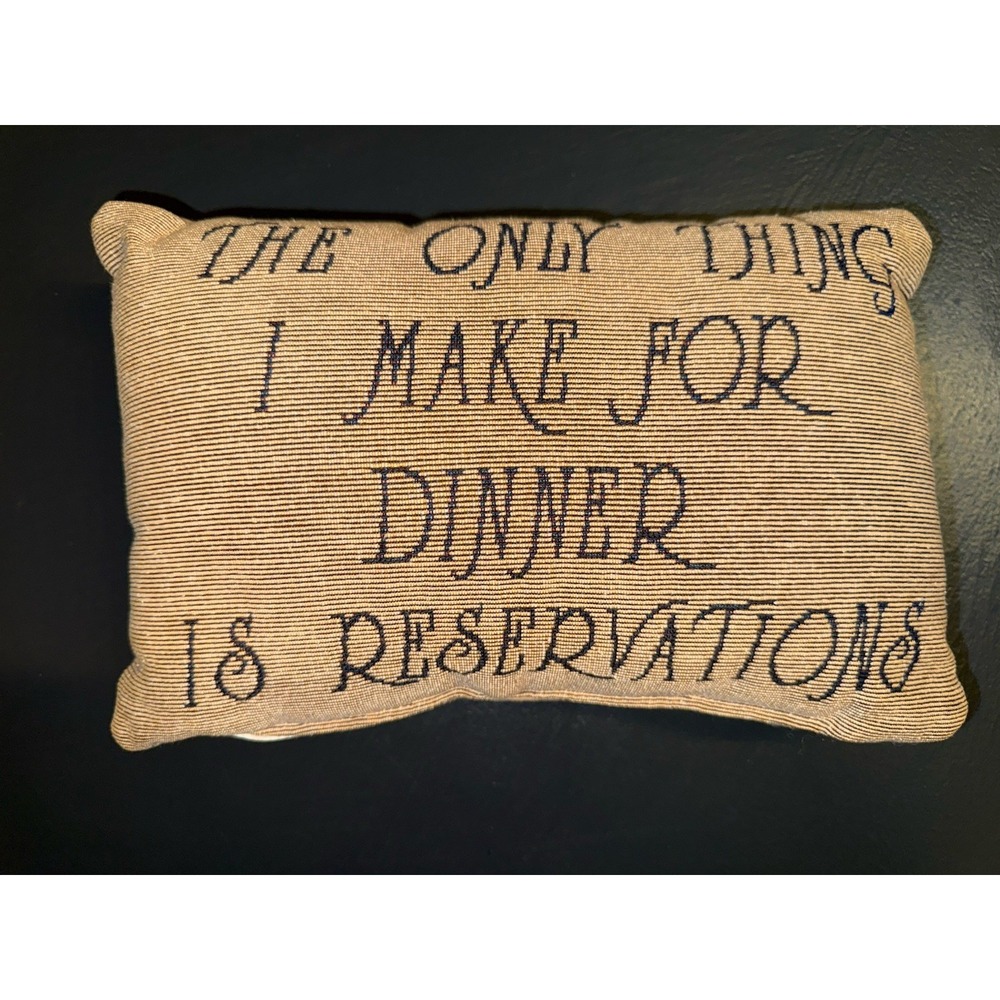 THE ONLY THING
I MAKE FOR
DINNER
IS RESERVATIONS